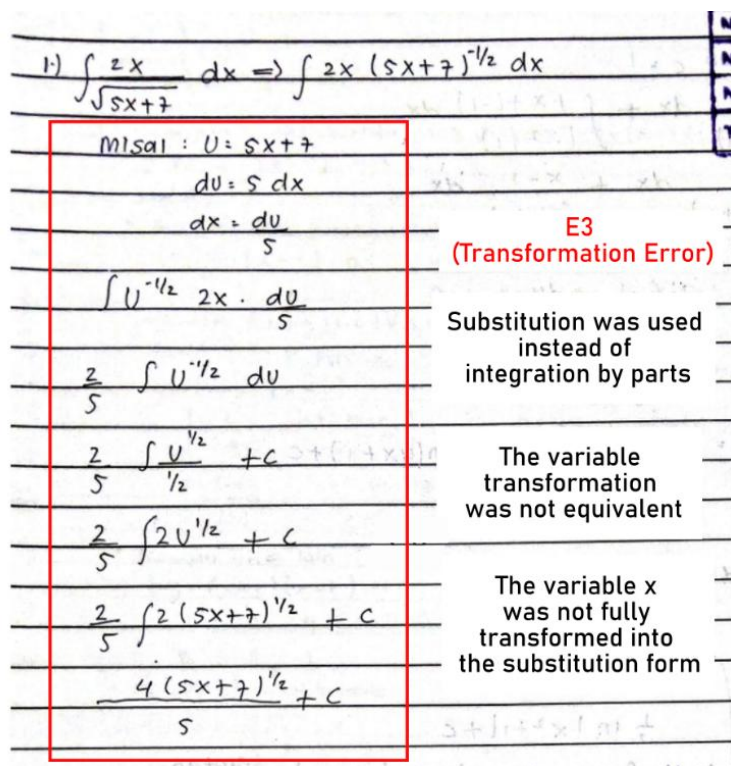 1.) ∫ 2x/√5x+7 dx => ∫ 2x (5x+7)^-1/2 dx
Misal : U = 5x+7
du = 5 dx
dx = du/5
∫ U^-1/2 2x . du/5
2/5 ∫ U^-1/2 du
2/5 ∫ U^1/2 / 1/2 + C
2/5 ∫ 2U^1/2 + C
2/5 ∫ 2 (5x+7)^1/2 + C
4 (5x+7)^1/2 / 5 + C
E3
(Transformation Error)
Substitution was used
instead of
integration by parts
The variable
transformation
was not equivalent
The variable x
was not fully
transformed into
the substitution form